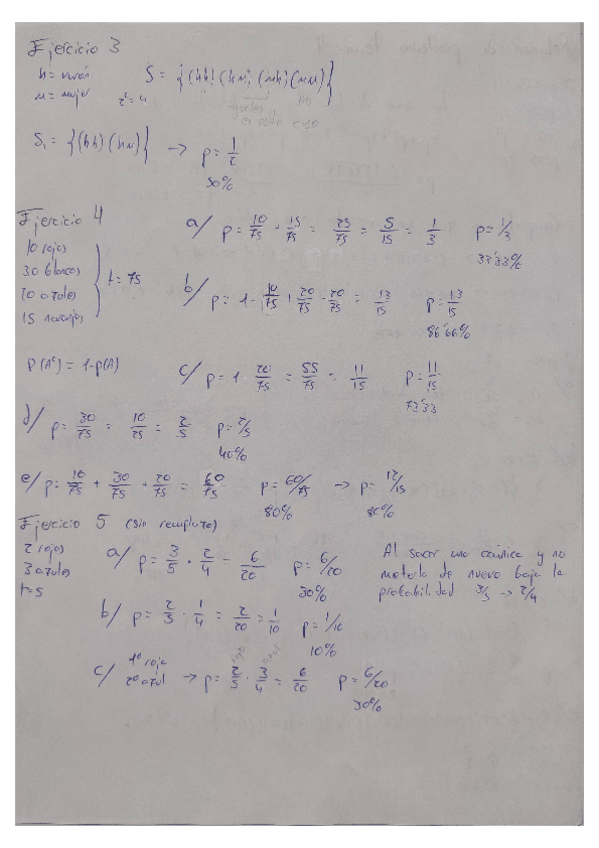 Ejercicio 3
h = varón
m = mujer
2² = 4
S = {(hh) (hm) (mh) (mm)}
iguales
en este caso
no
S₁ = {(hh) (hm)} → p = 1/2
50%
Ejercicio 4
10 rojos
30 blancos
20 azules
15 naranjas
t = 75
a/ p = 10/75 + 15/75 = 25/75 = 5/15 = 1/3 p = 1/3
33'33%
b/ p = 1 - 10/75 + 20/75 - 20/75 = 13/15 p = 13/15
86'66%
P(Aᶜ) = 1 - p(A)
c/ p = 1 - 20/75 = 55/75 = 11/15 p = 11/15
73'33
d/ p = 30/75 = 10/25 = 2/5 p = 2/5
40%
e/ p = 10/75 + 30/75 + 20/75 = 60/75 p = 60/75 → p = 12/15
80% 80%
Ejercicio 5 (sin remplazo)
2 rojos
3 azules
t = 5
a/ p = 3/5 · 2/4 = 6/20 p = 6/20
30%
Al sacar una canica y no
meterla de nuevo baja la
probabilidad 3/5 → 2/4
b/ p = 2/5 · 1/4 = 2/20 = 1/10 p = 1/10
10%
c/ 1º roja
2º azul → p = 2/5 · 3/4 = 6/20 p = 6/20
30%